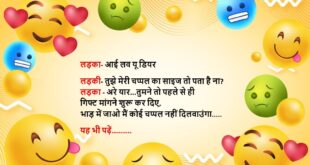 लड़का- आई लव यू डियर
लड़की- तुझे मेरी चप्पल का साइज तो पता है ना?
लड़का - अरे यार...तुमने तो पहले से ही
गिफ्ट मांगने शुरू कर दिए,
भाड़ में जाओ मैं कोई चप्पल नहीं दिलवाउंगा.....
यह भी पढ़ें..........